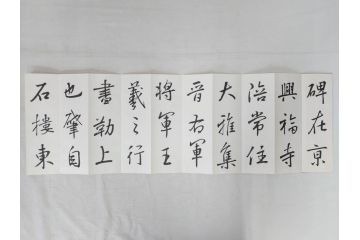 碑在京
興福寺
陪常住
大雅集
晉右軍
将軍王
羲之行
書勒上
也肇自
石樓東